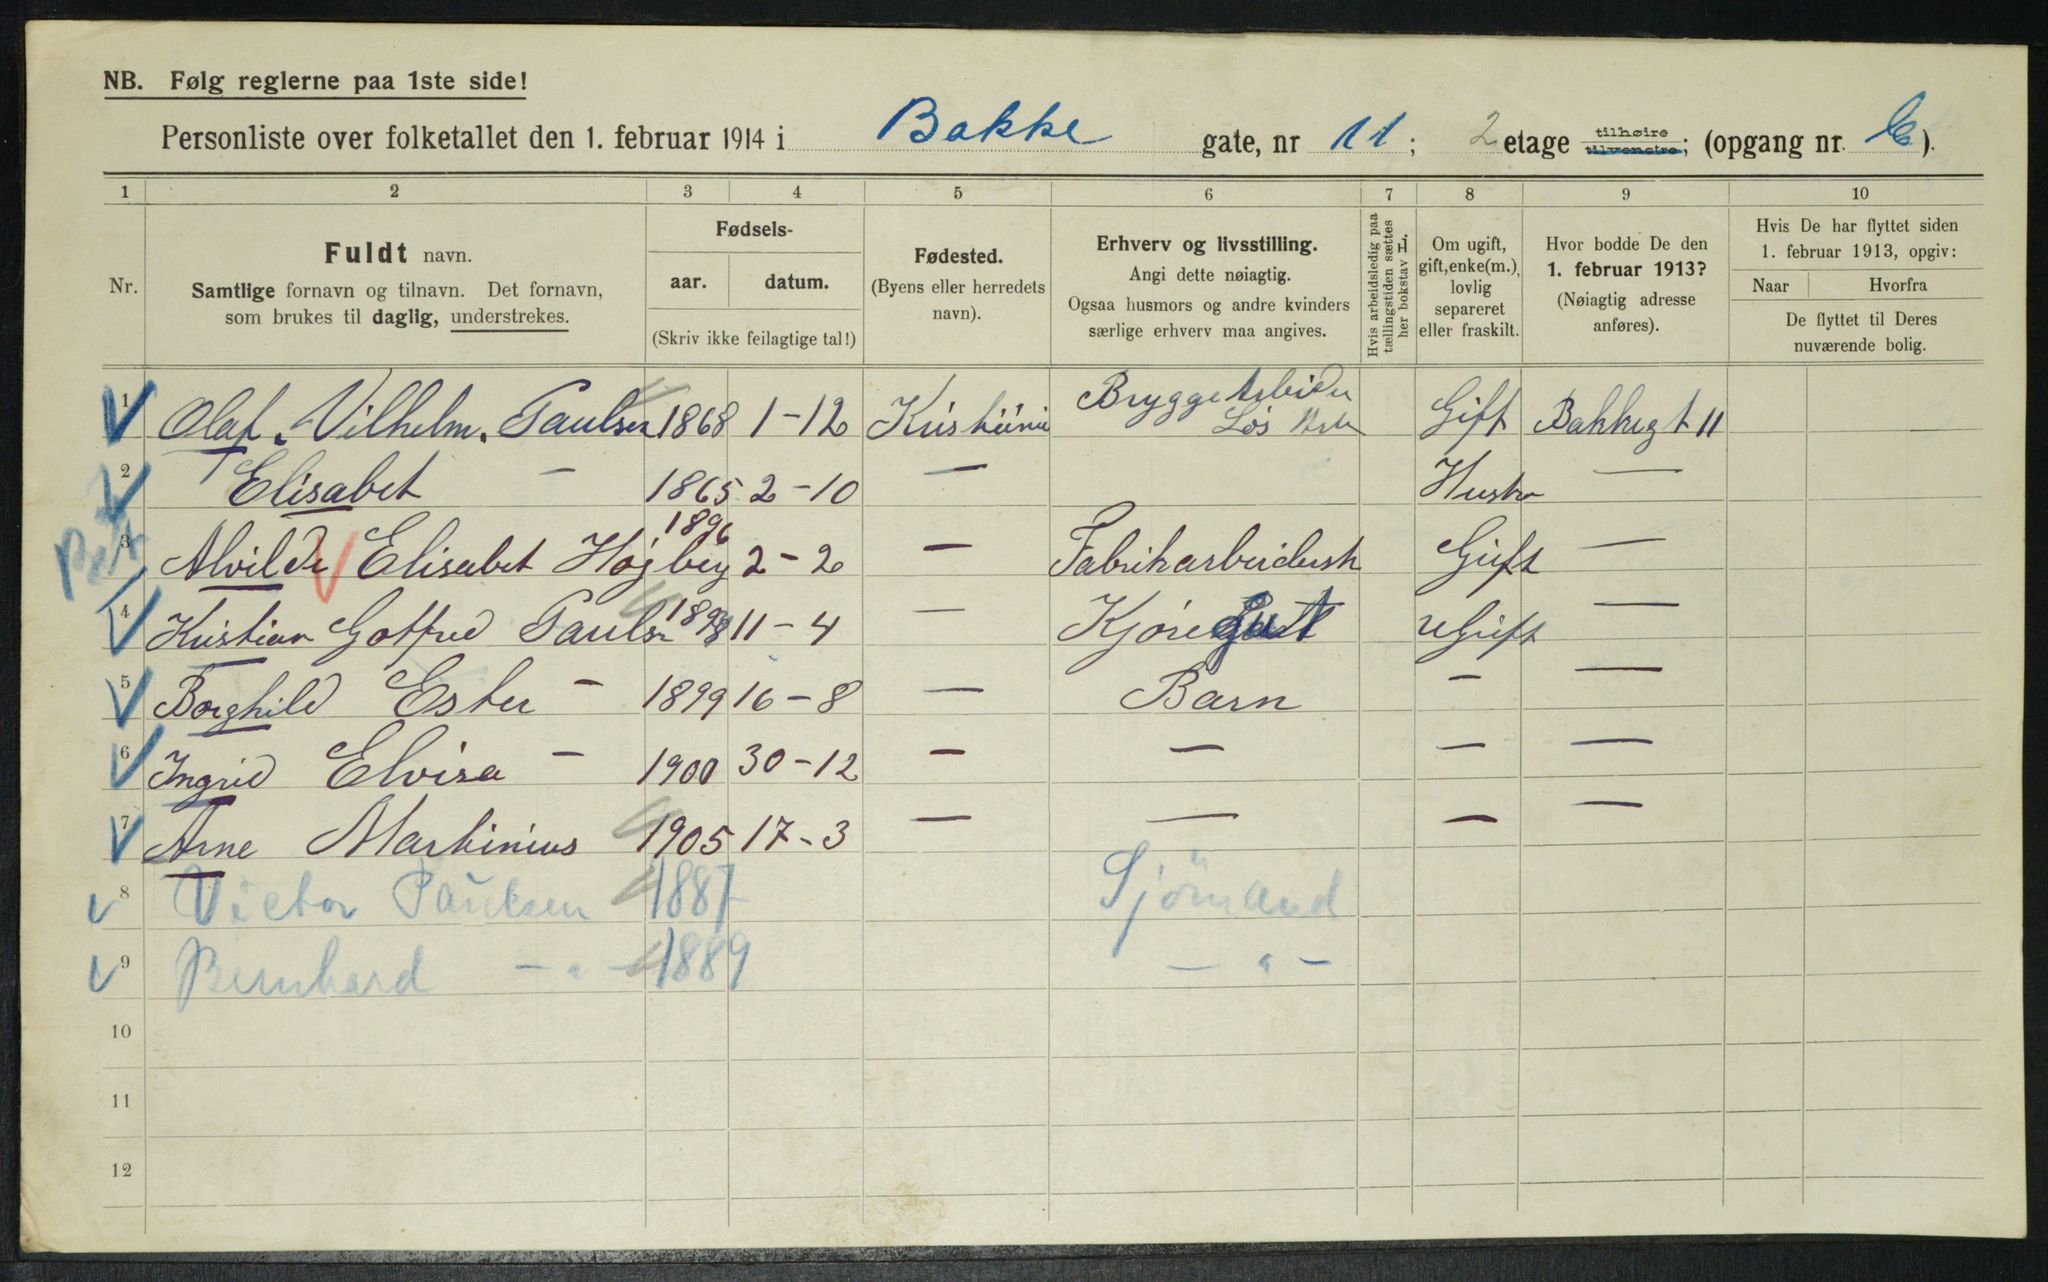 NB. Følg reglerne paa 1ste side!
Personliste over folketallet den 1. februar 1914 i Bakke gate, nr 11; 2 etage tilhøire tilvenstre; (opgang nr. ).
1 2 3 4 5 6 7 8 9 10
Nr.
Fuldt navn.
Samtlige fornavn og tilnavn. Det fornavn,
som brukes til daglig, understrekes.
Fødsels-
aar. datum.
(Skriv ikke feilagtige tal!)
Fødested.
(Byens eller herredets
navn).
Erhverv og livsstilling.
Angi dette nøiagtig.
Ogsaa husmors og andre kvinders
særlige erhverv maa angives.
Hvis arbeidsledig paa
tællingstiden sættes
her bokstav L.
Om ugift,
gift, enke(m.),
lovlig
separeret
eller fraskilt.
Hvor bodde De den
1. februar 1913?
(Nøiagtig adresse
anføres).
Hvis De har flyttet siden
1. februar 1913, opgiv:
Naar Hvorfra
De flyttet til Deres
nuværende bolig.
1 Olaf Vilhelm Paulsen 1868 1-12 Kristiania Bryggearbeider Løs Arb Gift Bakkegt 11
2 Elisabet — 1865 2-10 — Hustr —
3 Alvilde Elisabet Højbey 1896 2-2 — Fabrikarbeidersk Gift —
4 Kristian Gotfred Paulsn 1898 11-4 — Kjøregut UGift —
5 Borghild Ester — 1899 16-8 — Barn — —
6 Ingrid Elvira — 1900 30-12 — — — —
7 Arne Martinius 1905 17-3 — — — —
8 Victor Paulsen 1887 Sjömand
9 Bernhard — " — 1889 — " —
10
11
12